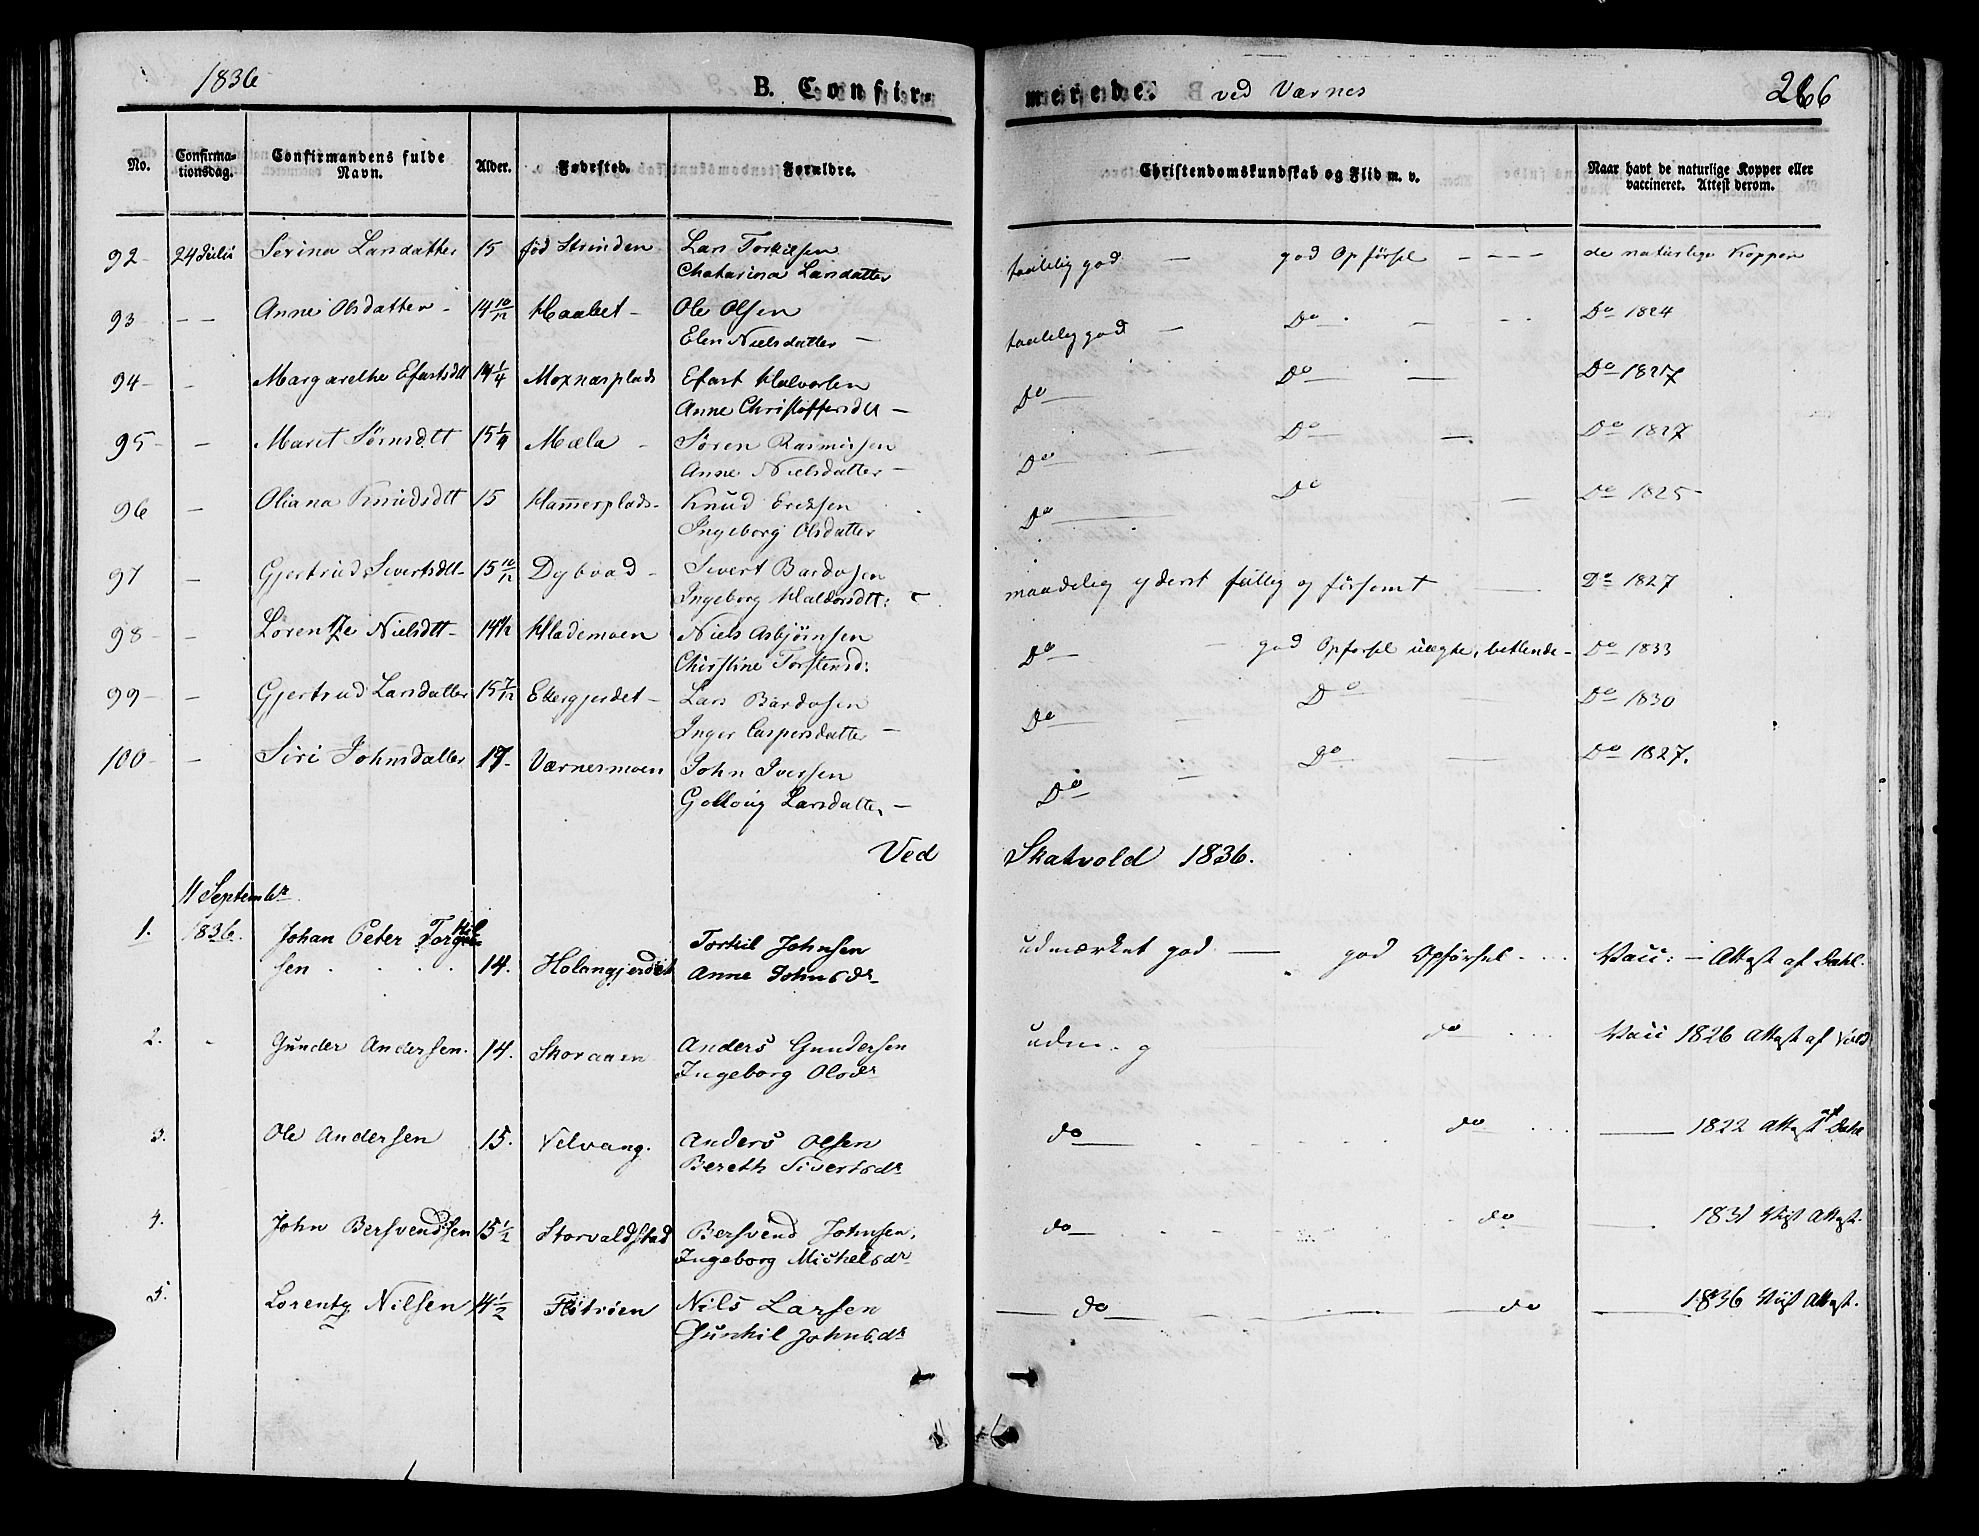 1836
B. Confir-
merede.
ved Værnes
266
No.
Confirma-
tionsdag.
Confirmandens fulde
Navn.
Alder.
Fødested.
Forældre.
Christendomskundskab og Flid m. v.
Naar havt de naturlige Kopper eller
vaccineret. Attest derom.
92 - 24 Julii Serina Larsdatter 15 fød Strinden Lars Torkilsen
Chatarina Larsdatter
taalelig god — god Opførsel - - - - de naturlige Kopper
93 - - - Anne Olsdatter - 14 10/12 Haabet - Ole Olsen
Elen Nielsdatter —
taalelig god — Do - Do 1824
94 - - Margarethe Efastsdtt 14 1/4 Moxnæsplads Efast Halvorsen
Anne Christoffersdtt —
Do — Do — Do 1827
95 - - Maret Sörnsdtt 15 1/4 Mæla - Sören Rasmusen
Anne Nielsdatter —
Do — Do — Do 1827
96 - Oliana Knudsdtt 15 Hammerplads - Knud Ericksen
Ingeborg Olsdatter
Do — Do — Do 1825
97 - Gjertrud Sivertsdtt - 15 10/12 Dybvad - Sivert Bardosen
Ingeborg Haldorsdtt:
maadelig yderst og forsømt — Do 1827
98 - - Lorentze Nielsdtt - 14 1/2 Hlademoen Niels Asbjörnsen
Christine Torstensd:
Do - god Opførsel uægte, betlende - Do 1833
99 - - Gjertrud Larsdatter 15 7/12 Ekergjerdet - Lars Bardosen
Inger Caspersdatter —
Do — Do — Do 1830
100 - - Siri Johnsdatter 17 - Værnesmoen John Iversen
Golloug Larsdatter —
Do — Do — Do 1827.
Ved Skatvold 1836.
11 Septembr
1. 1836. Johan Peter Torkil-
sen . . . . 14. Holangjerdet Torkil Johnsen
Anne Johnsdr
udmærket god. — god Opførsel . . . Vacc: - Attest af Dahl.
2. Gunder Andersen. 14. Skoraaen Anders Gundersen
Ingeborg Olsdr
udm. g do . . . Vacc 1826 Attest af
3. Ole Andersen 15. Velvang. Anders Olsen
Bereth Sivertsdr
do — do . . . — 1822 Attest af Dahl
4. John Bersvendsen 15 1/2 Storvaldstad Bersvend Johnsen,
Ingeborg Michelsdr
do — do — 1831 Attest.
5. Lorentz Nilsen 14 1/2 Flötröen Nils Larsen
Gunhil Johnsdr
— do — do — 1836 Attest.